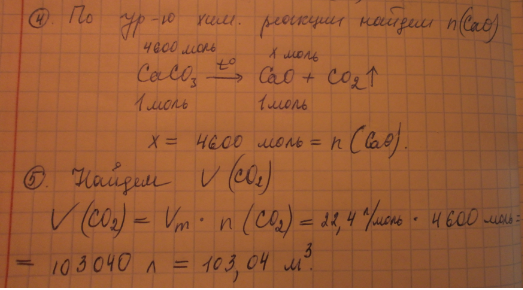 ④. По ур-ю хим. реакции найдем n(CaO)
4600 моль x моль
CaCO₃ —t°→ CaO + CO₂↑
1 моль 1 моль
x = 4600 моль = n (CaO).
⑤. Найдем V (CO₂)
V (CO₂) = Vm · n (CO₂) = 22,4 л/моль · 4600 моль =
= 103040 л = 103,04 м³.